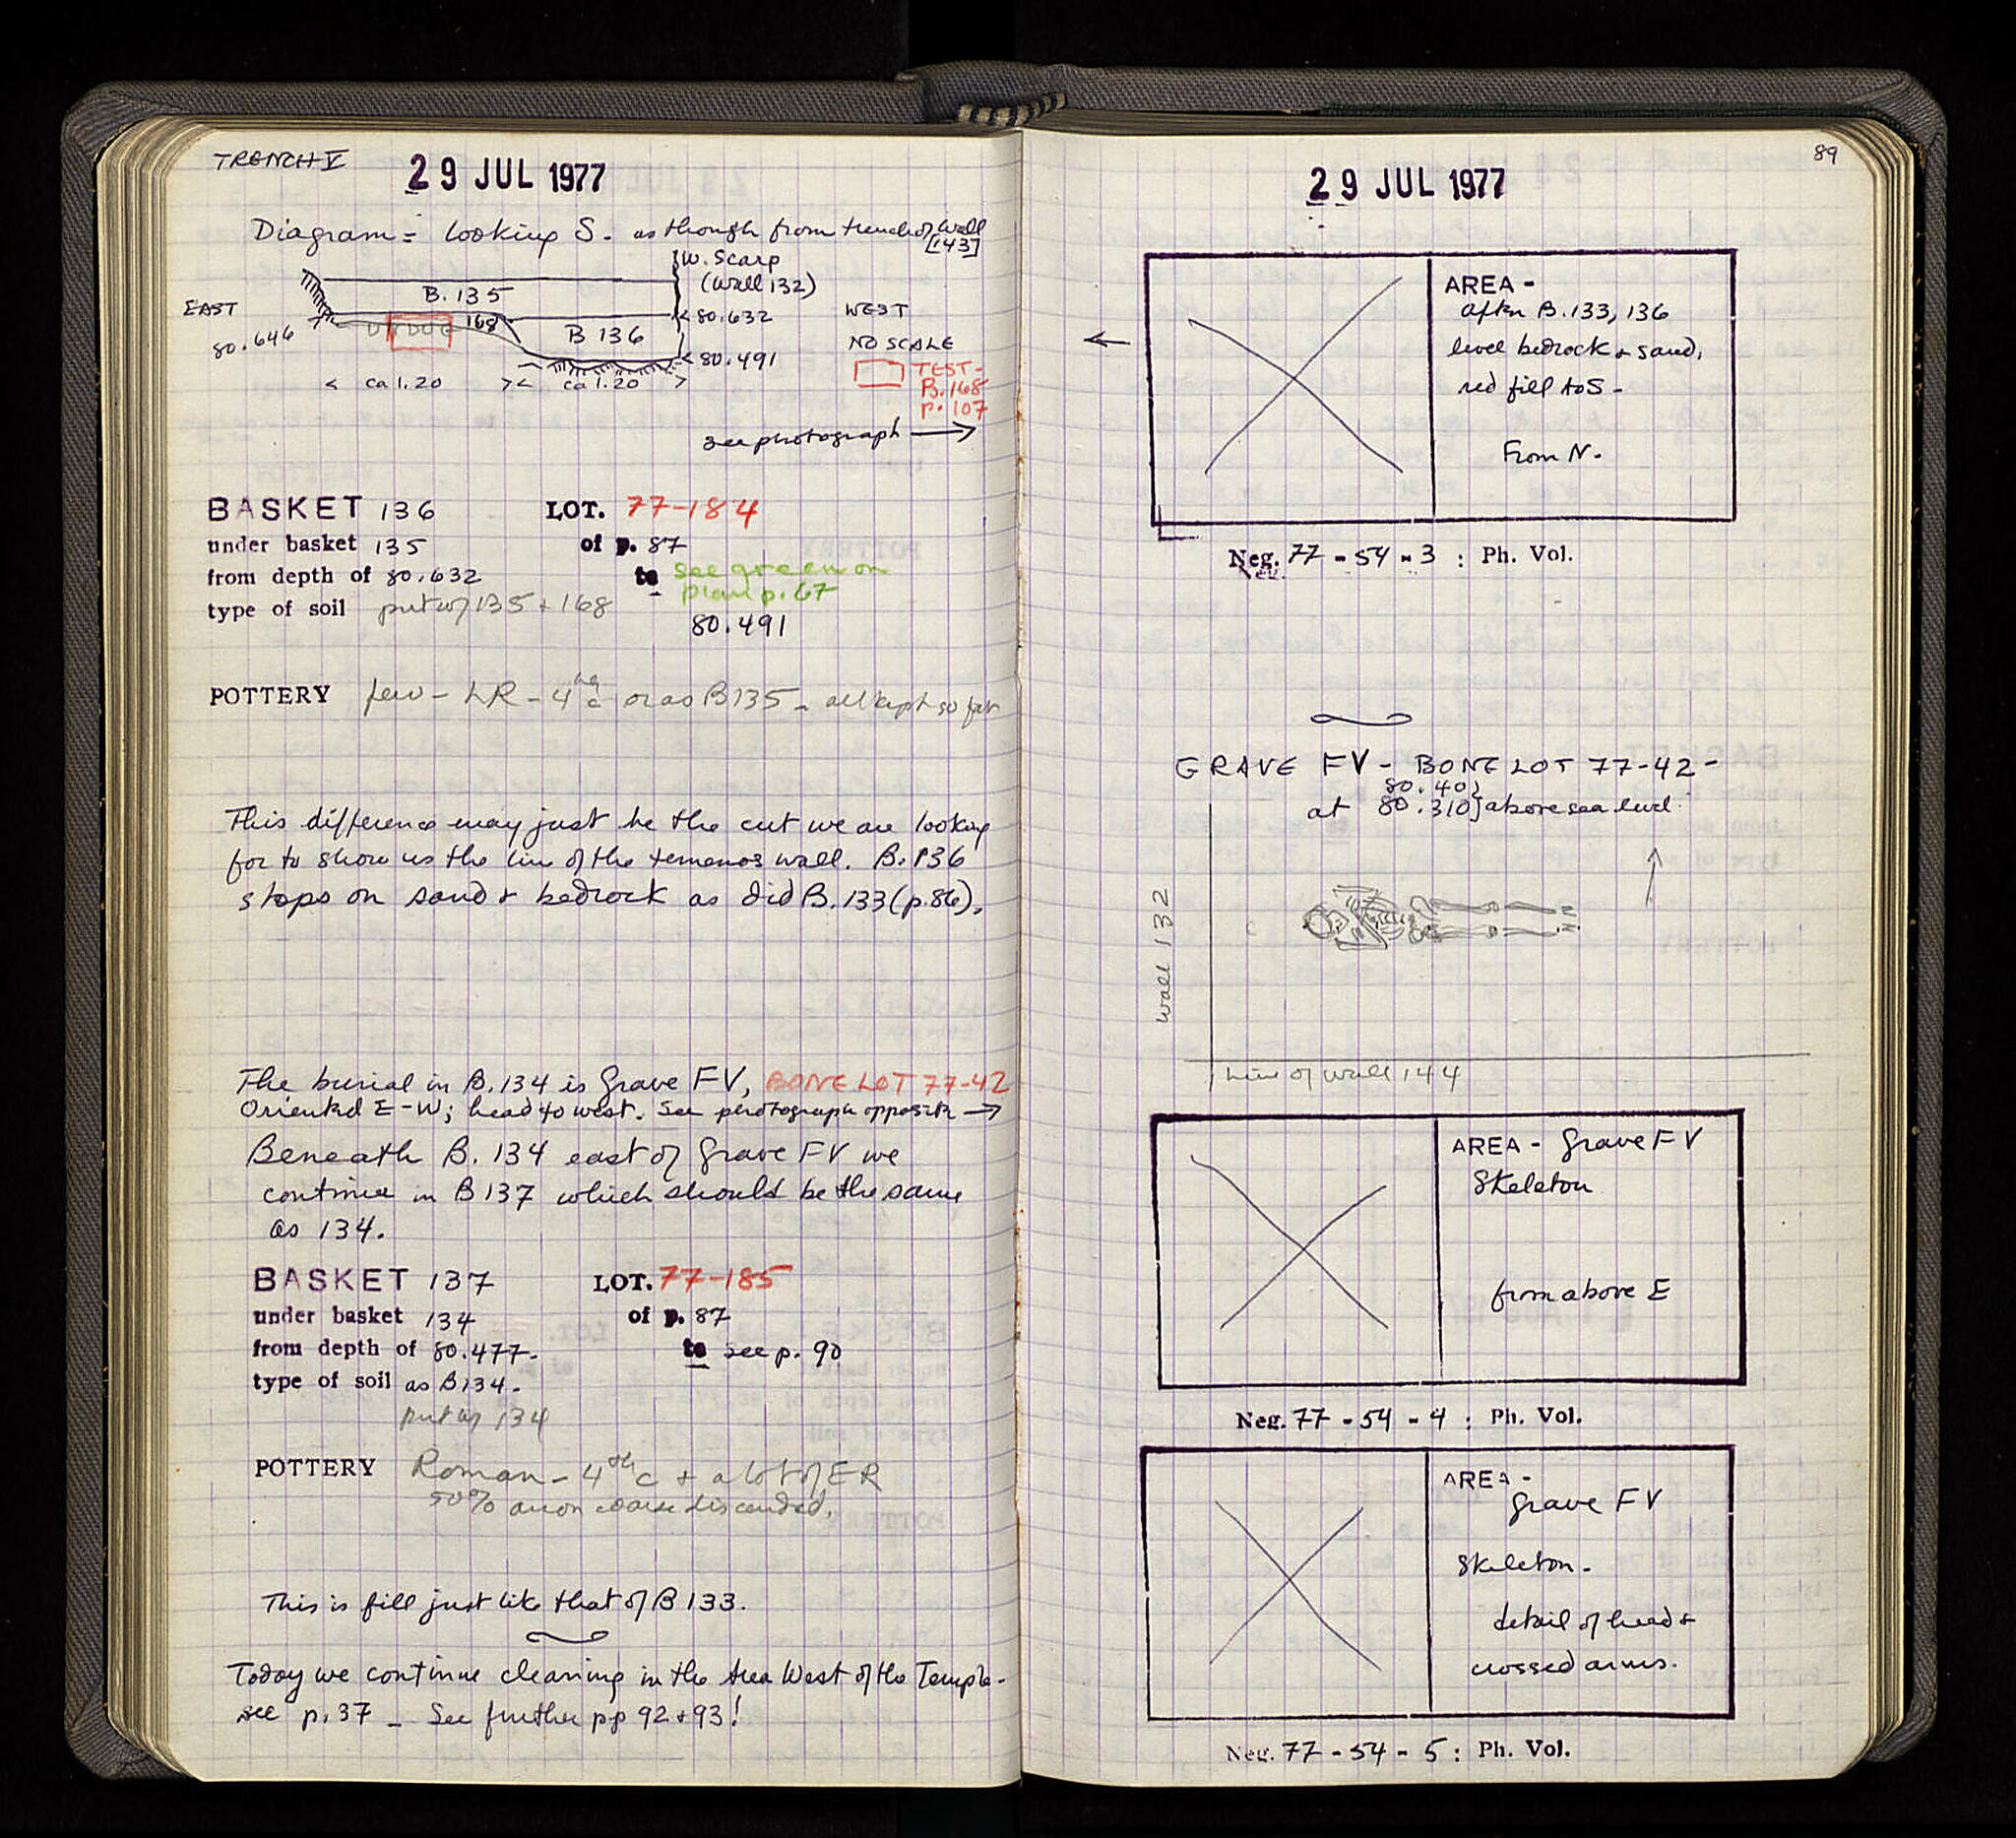 TRENCH V
29 JUL 1977
Diagram = looking S. as though from trench of wall
[143]
W. Scarp
(Wall 132)
B. 135
EAST
80.632
WEST
168
UNDUG
B 136
80.646
NO SCALE
80.491
TEST-
ca 1.20
ca 1.20
B. 168
p. 107
see photograph →
BASKET 136 LOT. 77-184
under basket 135 of p. 87
from depth of 80.632 to see green on
plan p. 67
type of soil put w/ 135 + 168
80.491
POTTERY few - LR - 4th c or as B135 - all kept so far
This difference may just be the cut we are looking
for to show us the line of the temenos wall. B. 136
stops on sand & bedrock as did B. 133 (p. 86).
The burial in B. 134 is Grave FV, BONE LOT 77-42
Oriented E-W; head to west. See photograph opposite →
Beneath B. 134 east of Grave FV we
continue in B 137 which should be the same
as 134.
BASKET 137 LOT. 77-185
under basket 134 of p. 87
from depth of 80.477. to see p. 90
type of soil as B134.
put w/ 134
POTTERY Roman - 4th c + a lot of ER
50% anon coarse discarded.
This is fill just like that of B 133.
Today we continue cleaning in the Area West of the Temple-
see p. 37 - See further pp 92+93!
89
29 JUL 1977
←
AREA -
after B. 133, 136
level bedrock & sand,
red fill to S -
From N.
Neg. 77 - 54 - 3 : Ph. Vol.
Neg.
GRAVE FV - BONE LOT 77-42 -
80.40
at 80.310} above sea level
wall 132
Line of wall 144
AREA - Grave FV
Skeleton
from above E
Neg. 77 - 54 - 4 : Ph. Vol.
AREA -
Grave FV
Skeleton -
detail of head &
crossed arms.
Neg. 77 - 54 - 5 : Ph. Vol.